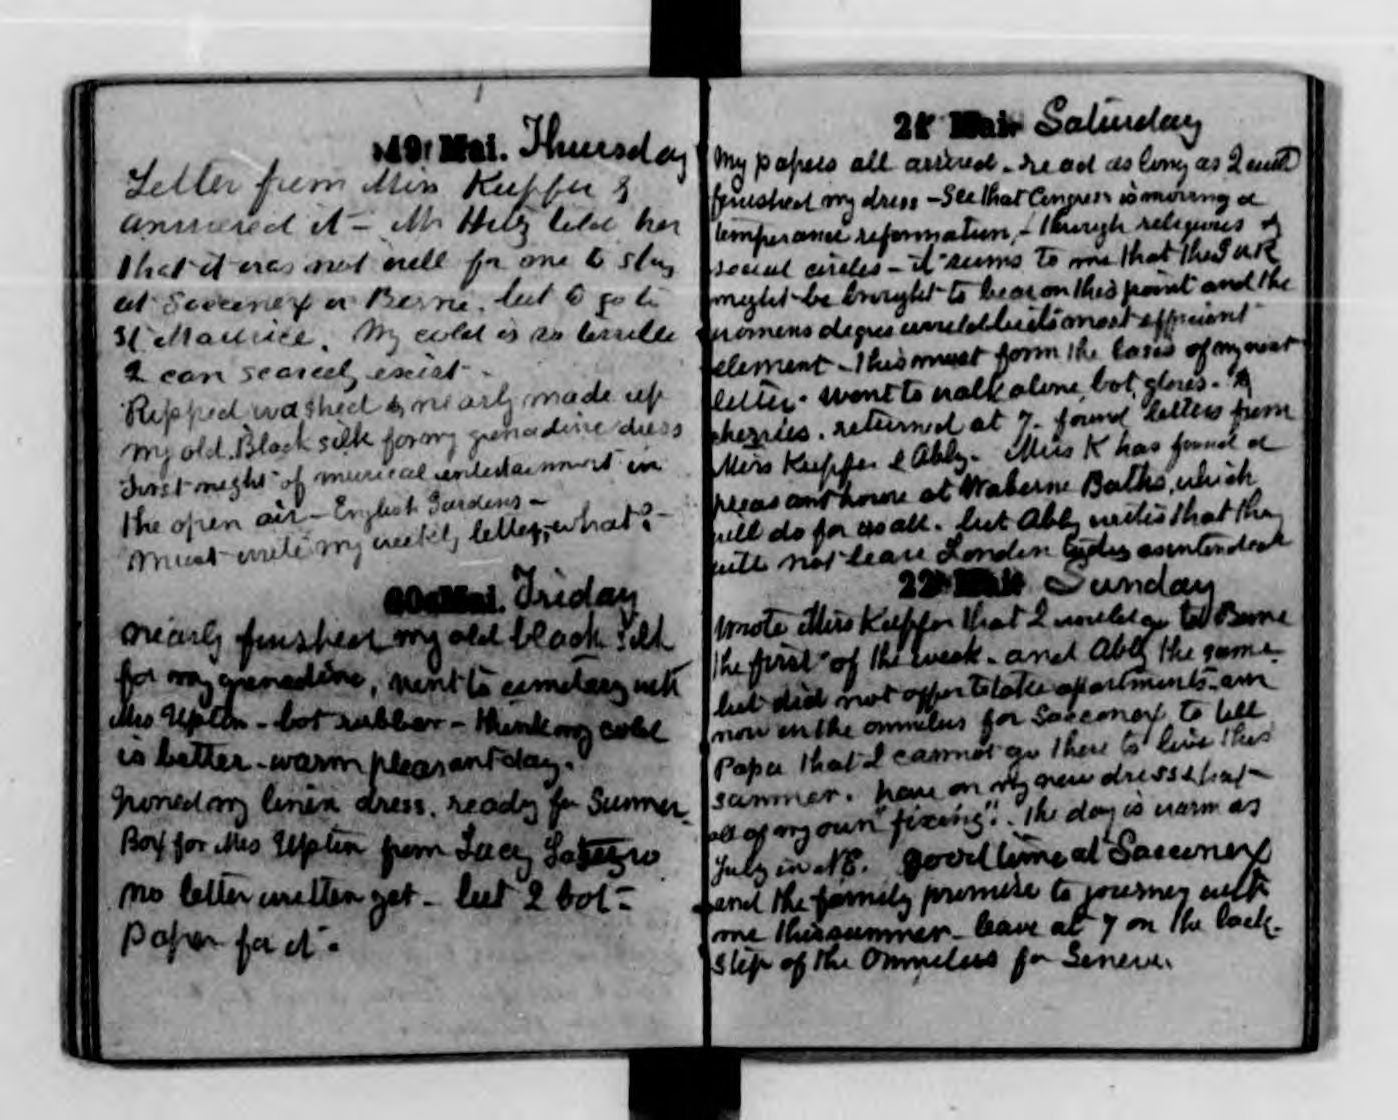 19. Mai. Thursday
Letter from Miss Kupfer &
answered it - Mr Hitz told her
that it was not well for me to stay
at Saconnex or Berne, but to go to
St Maurice. My cold is so terrible
I can scarcely exist -
Ripped washed & nearly made up
my old Black silk for my grenadine dress
First night of musical entertainment in
the open air - English Gardens -
Must write my weekly letter, what? -
20. Mai. Friday
Nearly finished my old black silk
for my grenadine, went to cemetary with
Mrs Upton - bot rubber - think my cold
is better - warm pleasant day.
Ironed my linen dress. ready for Summer.
Box for Mrs Upton from Lucy
no letter written yet - but I bot -
paper for it -
21. Mai. Saturday
My papers all arrived - read as long as I could
finished my dress - See that Congress is moving a
temperance reformation, - through religious &
social circles - it seems to me that the
might be brought to bear on this point and the
womens degree would be its most efficient
element - This must form the basis of my next
letter - Went to walk alone, bot gloves - &
cherries. returned at 7 - found letters from
Miss Kupfer & Abby - Miss K has found a
pleasant house at Waberne Baths, which
will do for us all. but Abby writes that they
will not leave London as intended
22. Mai. Sunday
Wrote Miss Kupfer that I would go to Berne
the first of the week - and Abby the same -
but did not offer to take apartments - am
now in the omnibus for Saconnex, to tell
Papa that I cannot go there to live this
summer. have on my new dress & hat -
all of my own "fixing". The day is warm as
July in N.E. Good time at Saconnex
and the family promise to journey with
me this summer - leave at 7 on the back -
step of the Omnibus for Geneva.